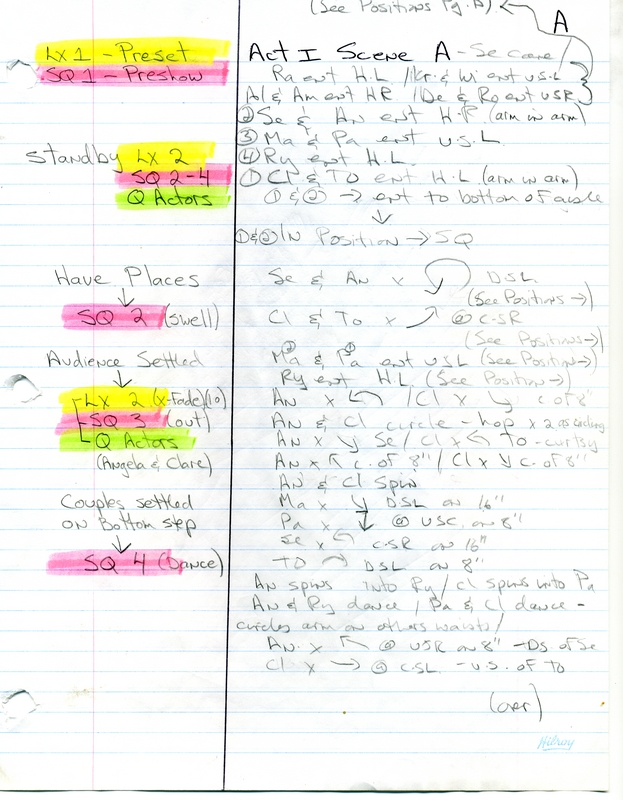 (See Positions Pg. A)
A
LX 1 - Preset
Act I Scene A - Se
SQ 1 - Preshow
Ra ent H.L / Kr & Wi ent U.S.L
Al & Am ent HR / De & Ro ent USR
② Se & An ent H.R (arm in arm)
③ Ma & Pa ent U.S.L
Standby LX 2
④ Ry ent H.L.
SQ 2-4
① Cl & To ent H.L (arm in arm)
Q Actors
① & ② → ent to bottom of aisle
↓
①&② IN Position → SQ
Have Places
Se & An x DSL
↓
(See Positions →)
SQ 2 (swell)
Cl & To x @ C-SR
(See Positions →)
Audience Settled
Ma② & Pa① ent USL (See Positions →)
↓
Ry ent H.L (See Positions →)
LX 2 (x-Fade)(10)
An x ← / Cl x ↘ c of 8"
SQ 3 (out)
An & Cl circle - hop x 2 as circling
Q Actors
An x ↘ Se / Cl x ↖ To - curtsy
(Angela & Clare)
An x ↖ c. of 8" / Cl x ↘ c. of 8"
An & Cl Spin
Couples settled
Ma x ↘ DSL on 16"
on Bottom step
Pa x ↓ @ USC. on 8"
↓
Se x ← C-SR on 16"
SQ 4 (Dance)
TO DSL on 8"
An spins into Ry / Cl spins into Pa
An & Ry dance / Pa & Cl dance -
circles arm on others waists /
An. x ↖ @ USR on 8" - DS of Se
Cl x → @ C.SL - U.S. of To
(over)
Hilroy